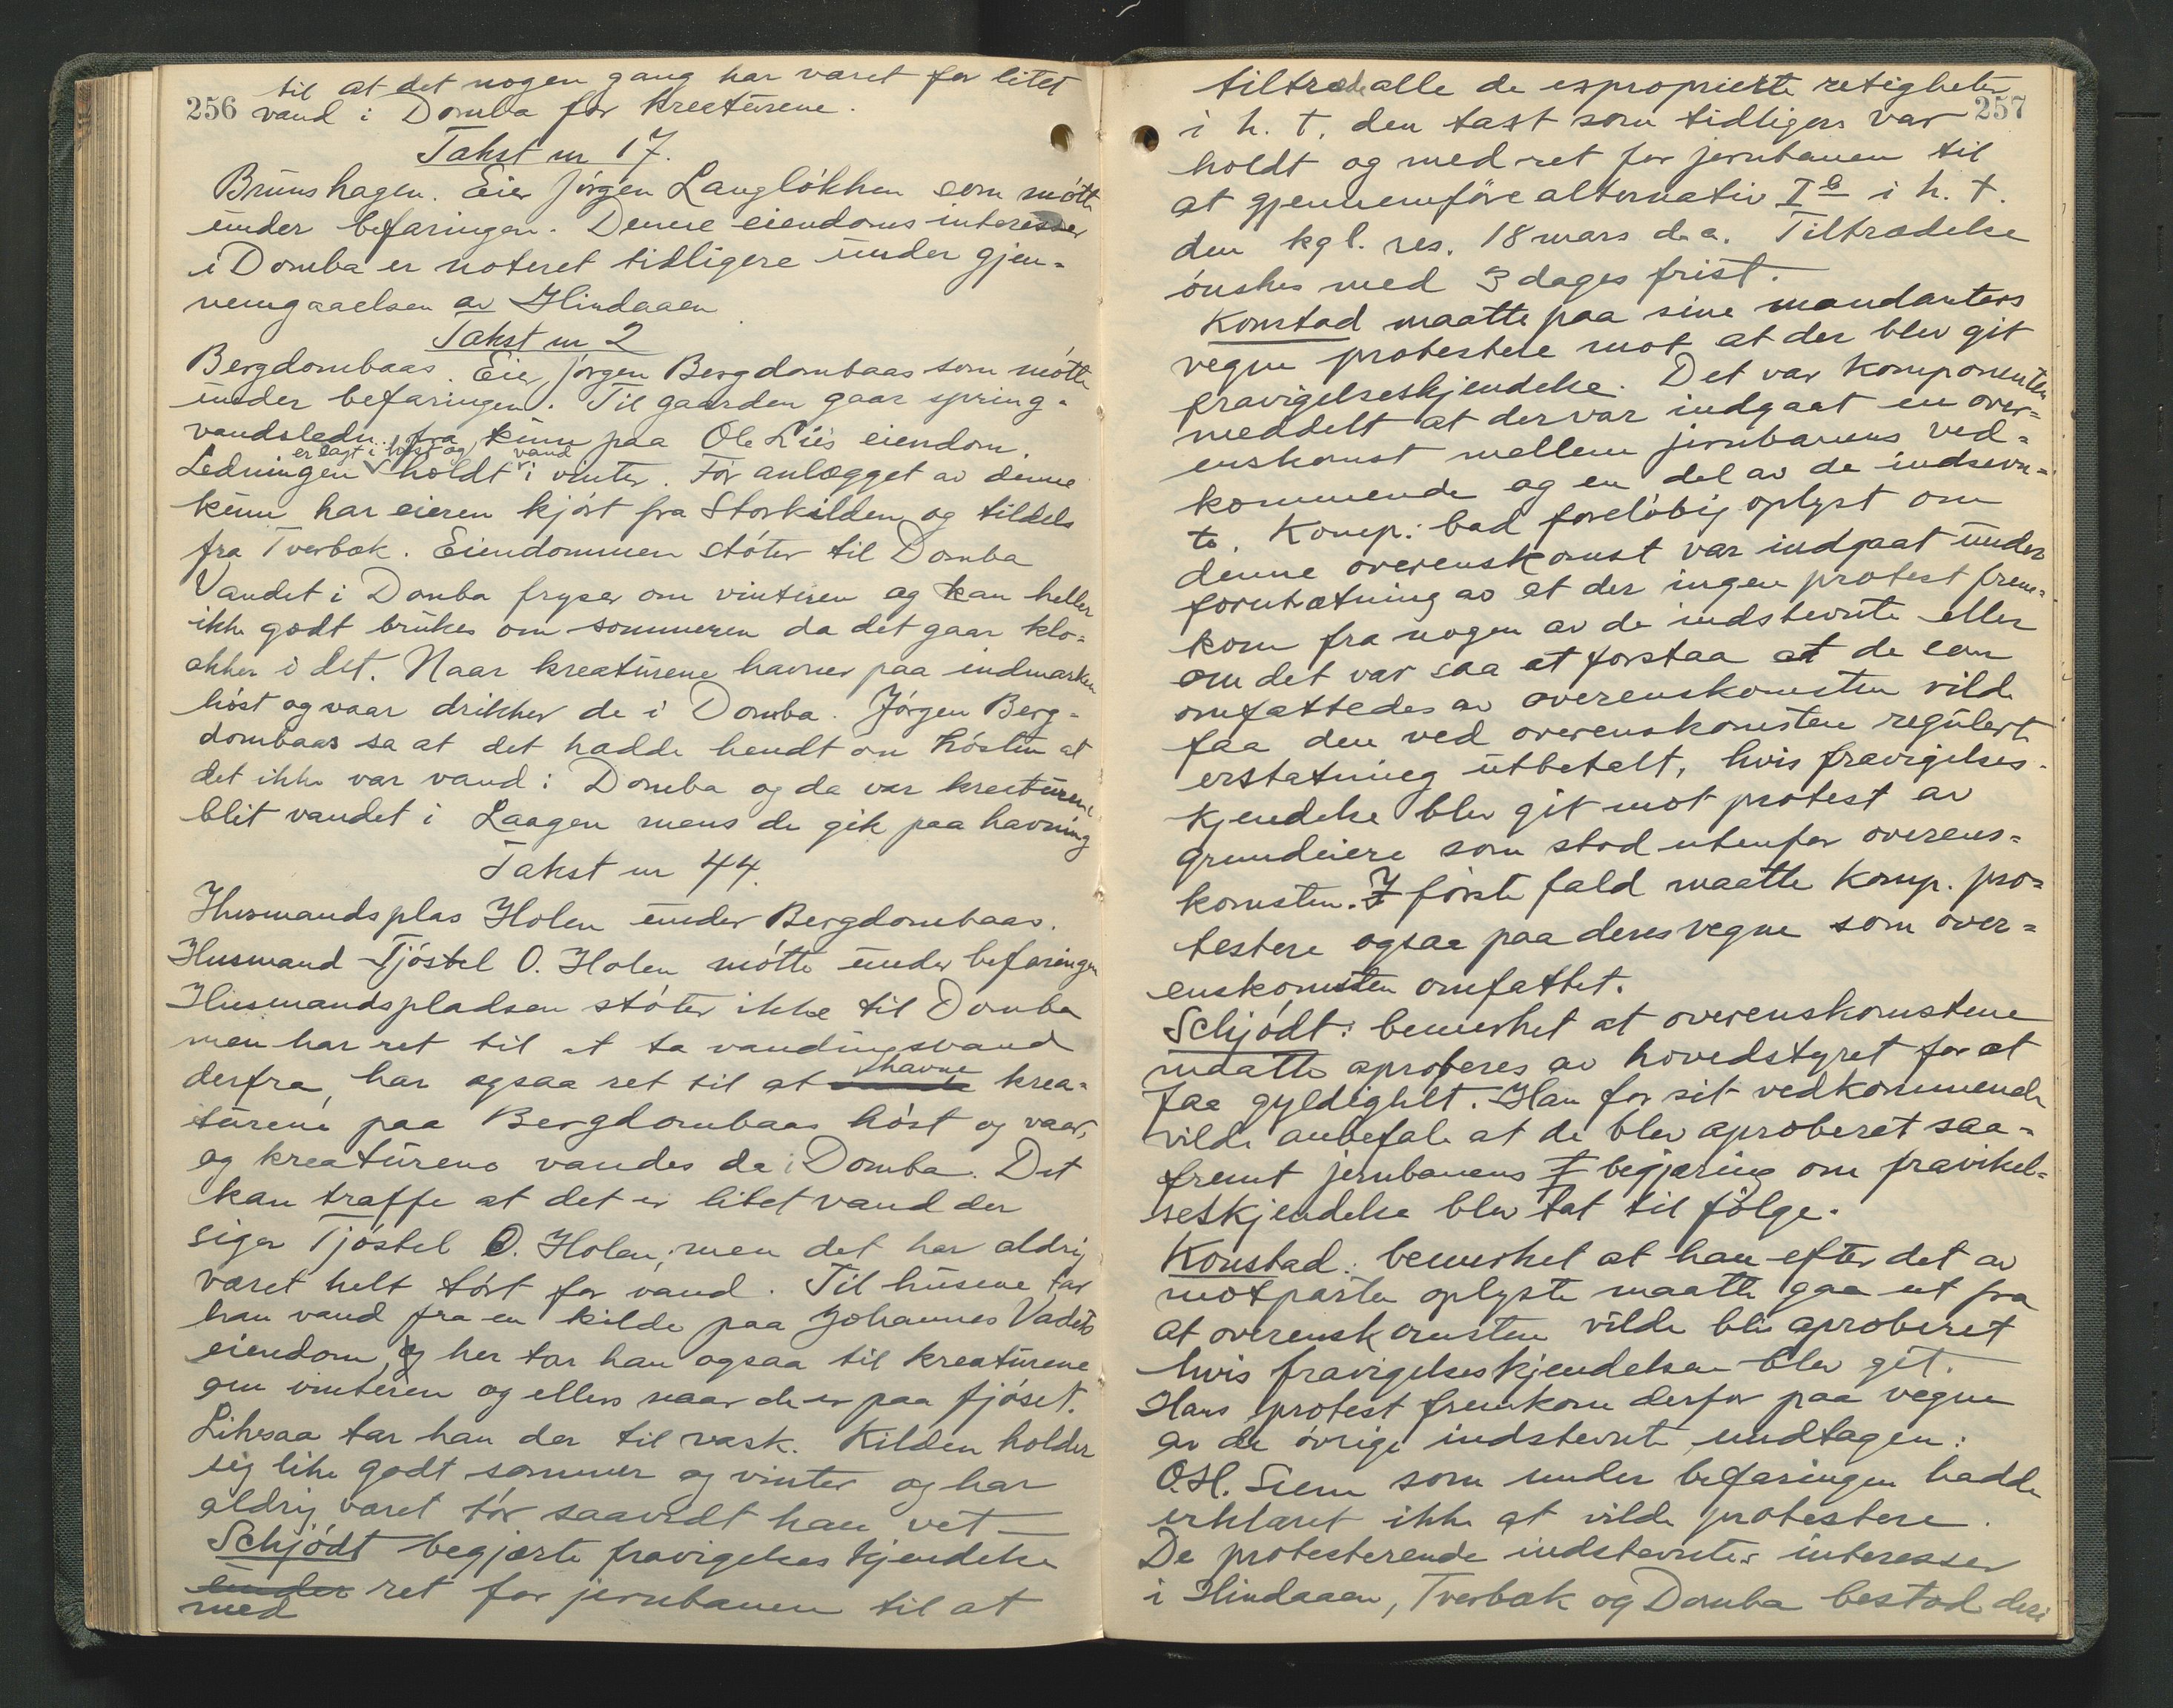 til at det nogen gang har været for litet
256 vand i Domba for kreaturene.
Takst nr 17.
Brunshagen. Eier Jörgen Langlökken som mötte
under befaringen. Denne eiendoms interesser
i Domba er noteret tidligere under gjen-
nemgaaelsen av Hindaaen
Takst nr 2
Bergdombaas. Eier, Jörgen Bergdombaas som mötte
under befaringen. Til gaarden gaar spring-
vandsledn. fra kum paa Ole Lii's eiendom.
er lagt i höst og vand
Ledningen holdt i vinter. För anlægget av denne
kum har eieren kjört fra Storkilden og tildels
fra Tverbæk. Eiendommen stöter til Domba
Vandet i Domba fryser om vinteren og kan heller
ikke godt brukes om sommeren da det gaar klo-
akker i det. Naar kreaturene havner paa indmarken
höst og vaar drikker de i Domba. Jörgen Berg-
dombaas sa at det hadde hendt om hösten at
det ikke var vand i Domba og da var kreaturene
blit vandet i Laagen mens de gik paa havning
Takst nr 44.
Husmandsplas Holen under Bergdombaas.
Husmand Tjöstel O. Holen mötte under befaringen
Husmandspladsen stöter ikke til Domba
men har ret til at ta vandingsvand
havne
derfra, har ogsaa ret til at krea-
turene paa Bergdombaas höst og vaar,
og kreaturene vandes da i Domba. Det
kan træffe at det er litet vand der
siger Tjöstel O. Holen, men det har aldrig
været helt tört for vand. Til husene tar
han vand fra en kilde paa Johannes Vadets
eiendom, og her tar han ogsaa til kreaturene
om vinteren og ellers naar de er paa fjöset.
Likesaa tar han der til vask. Kilden holder
sig like godt sommer og vinter og har
aldrig været tör saavidt han vet —
Schjödt begjærte fravigelseskjendelse
under ret for jernbanen til at
med
tiltræde alle de exproprierte retigheter
257
i h. t. den takst som tidligere var
holdt og med ret for jernbanen til
at gjennemföre alternativ I b i h. t.
den kgl. res. 18 mars d. a. Tiltrædelse
önskes med 3 dages frist.
Konstad maatte paa sine mandanters
vegne protestere mot at der blev git
fravigelseskjendelse. Det var komponenten
meddelt at der var indgaat en over-
enskomst mellem jernbanens ved-
kommende og en del av de indstevn-
te. Komp: bad foreløbig oplyst om
denne overenskomst var indgaat under
forutsætning av at der ingen protest frem-
kom fra nogen av de indstevnte eller
om det var saa at forstaa at de som
omfattedes av overenskomsten vilde
faa den ved overenskomsten regulert
erstatning utbetalt, hvis fravigelses-
kjendelse blev git mot protest av
grundeiere som stod utenfor overens-
komsten. I förste fald maatte komp. pro-
testere ogsaa paa deres vegne som over-
enskomsten omfattet.
Schjödt: bemerket at overenskomstene
maatte aproberes av hovedstyret for at
faa gyldighet. Han for sit vedkommende
vilde anbefale at de blev aproberet saa-
fremt jernbanens begjæring om fravikel-
seskjendelse blev tat til fölge.
Konstad: bemerket at han efter det av
motparten oplyste maatte gaa ut fra
at overenskomsten vilde bli aproberet
hvis fravigelseskjendelsen blev git.
Hans protest fremkom derfor paa vegne
av de övrige indstevnte undtagen:
O. H. Siem som under befaringen hadde
erklæret ikke at vilde protestere.
De protesterende indstevntes interesser
i Hindaaen, Tverbæk og Domba bestod deri